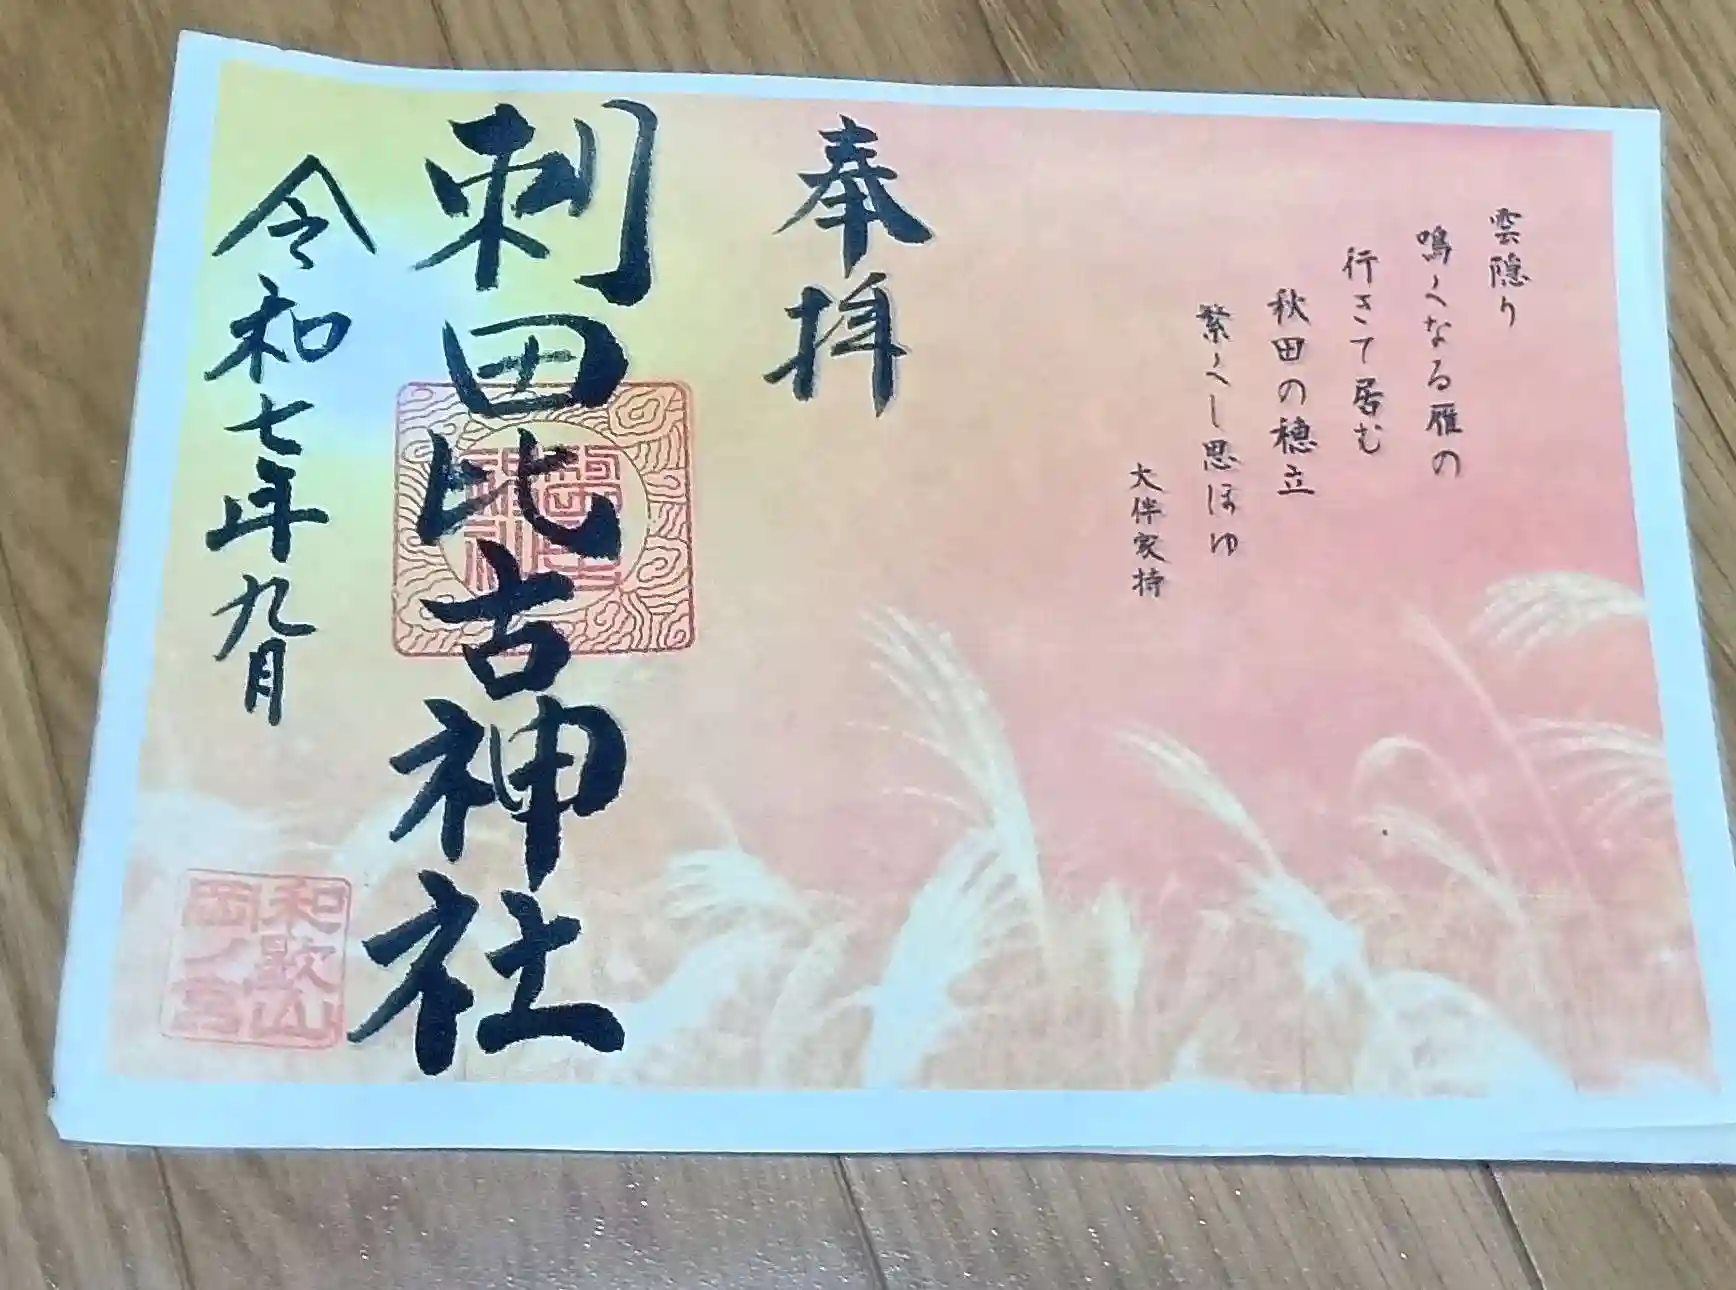 雲隠り
鳴くなる雁の
行きて居む
秋田の穂立
繁くし思ほゆ
大伴家持
奉拝
刺田比古神社
令和七年九月
和歌山
岡ノ宮